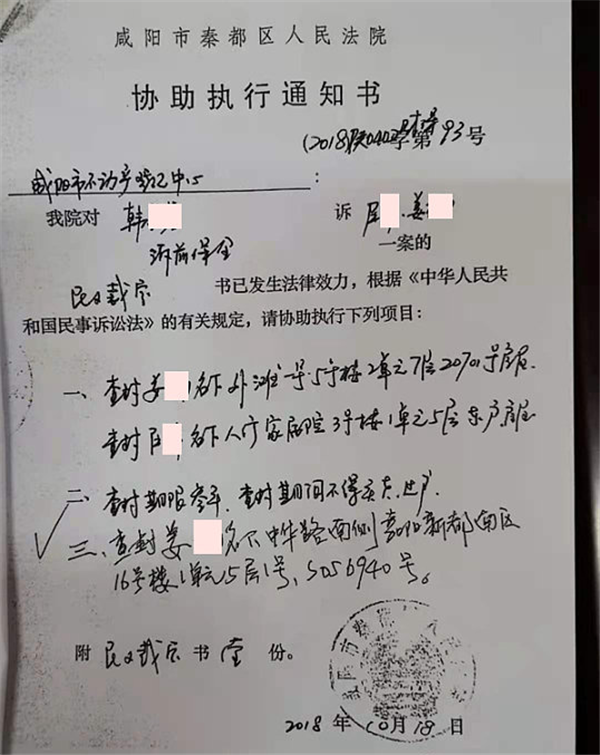 咸阳市秦都区人民法院
协助执行通知书
(2018)陕0402字第93号
咸阳市不动产登记中心:
我院对 韩 诉 姜
诉前保全 一案的
民事裁定 书已发生法律效力，根据《中华人民共
和国民事诉讼法》的有关规定，请协助执行下列项目：
一、查封姜 名下外滩 号5号楼2单元7层20701号房屋
查封 名下人行家属院3号楼1单元5层东户房屋
二、查封期限叁年，查封期间不得买卖、过户
三、查封姜 名下中华路南侧 阳新都南区
16号楼1单元15层1号，5056940号。
附 民事裁定 书 壹 份。
咸阳市秦都区人民法院
2018 年 10月18日